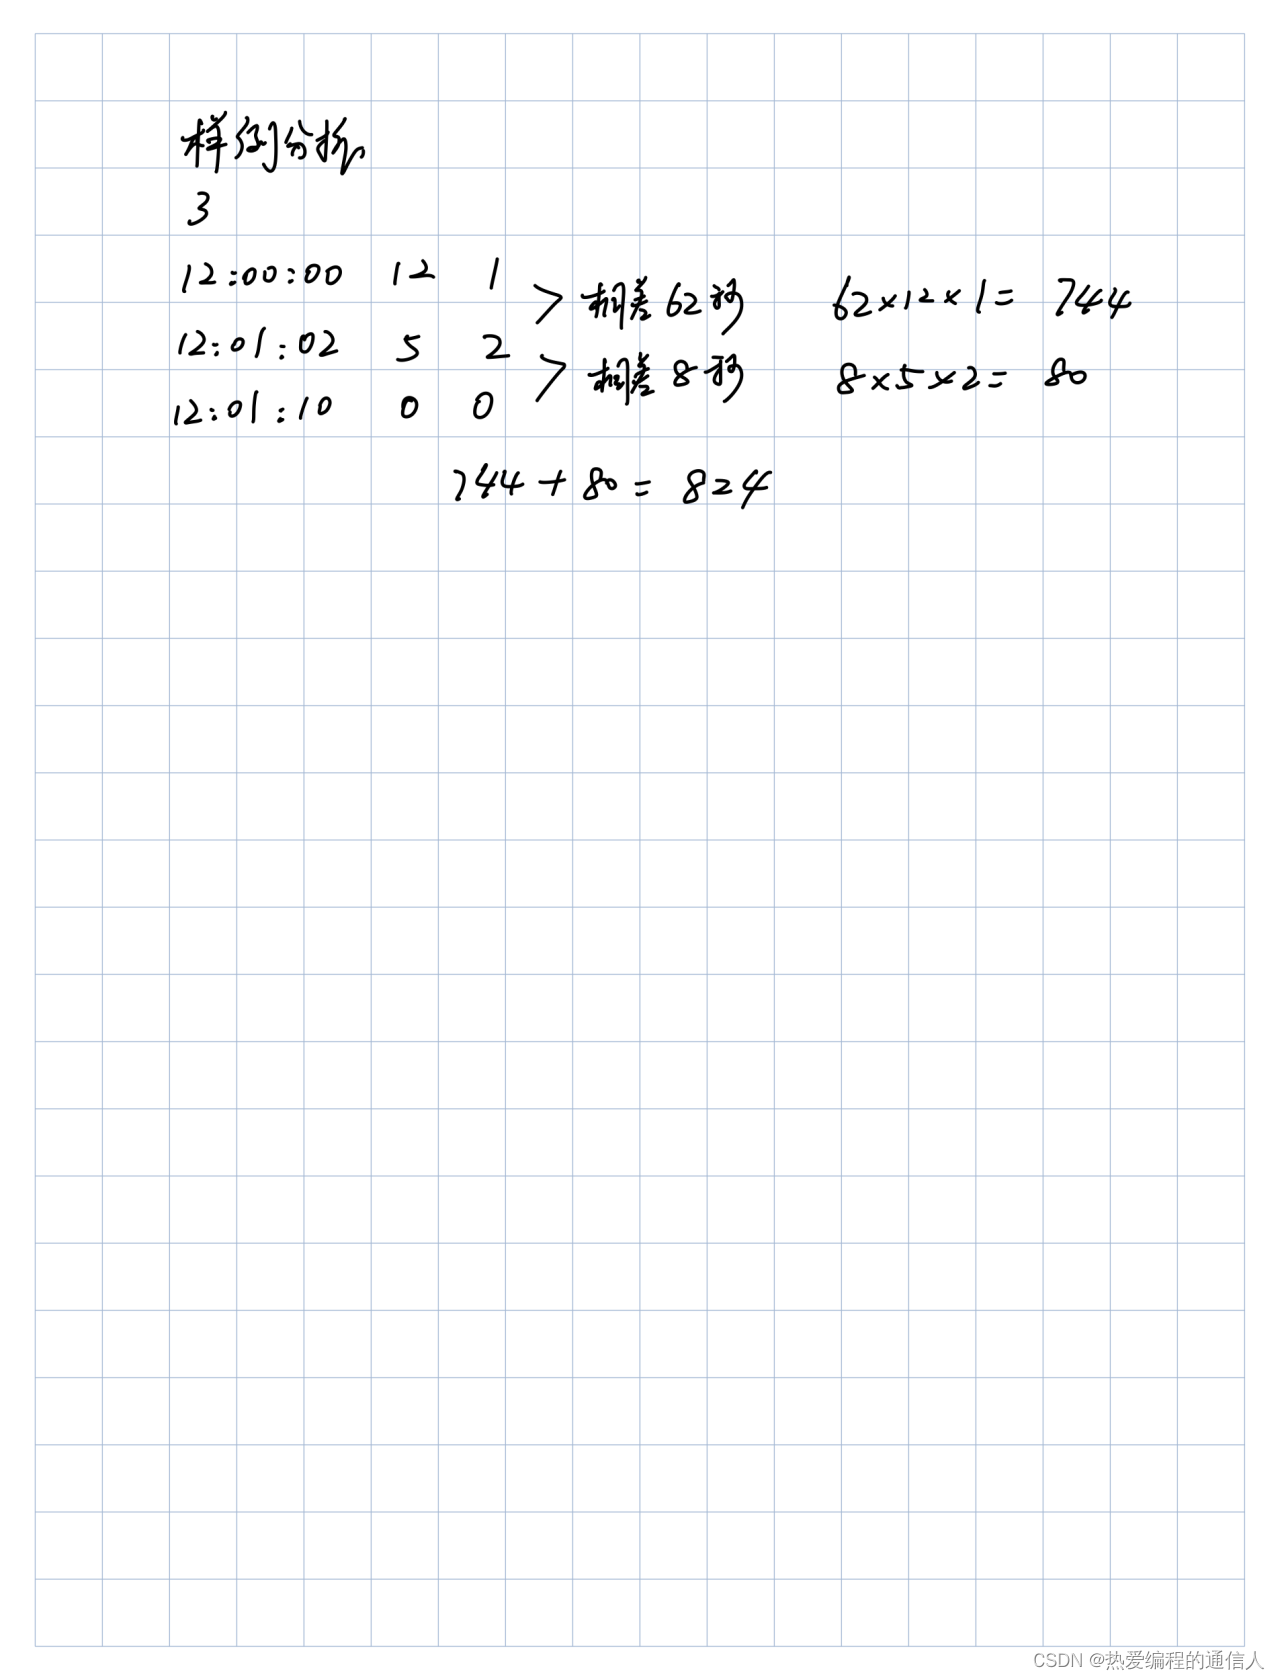 样例分析
3
12:00:00 12 1 > 相差62秒 62×12×1= 744
12:01:02 5 2 > 相差8秒 8×5×2= 80
12:01:10 0 0
744+80= 824
CSDN @热爱编程的通信人